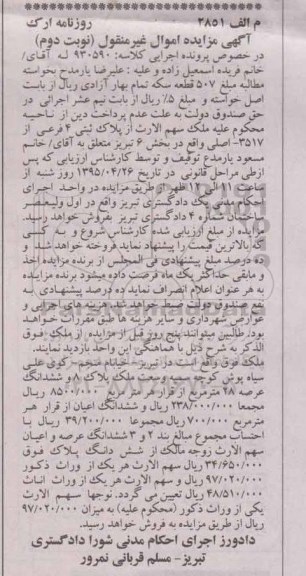 م الف ۲۸۵۱ روزنامه ارک
آگهی مزایده اموال غیرمنقول (نوبت دوم)
در خصوص پرونده اجرایی کلاسه: ۹۳۰۵۹۰ له آقای/
خانم فریده اسمعیل زاده و علیه : علیرضا یارمدح بخواسته
مطالبه مبلغ ۵۰۷ قطعه سکه تمام بهار آزادی ریال از بابت
اصل خواسته و مبلغ ۵٪ ریال از بابت نیم عشر اجرائی در
حق صندوق دولت به علت عدم پرداخت دین از ناحیه
محکوم علیه ملک سهم الارث از پلاک ثبتی ۴ فرعی از
۳۵۱۷- اصلی واقع در بخش ۶ تبریز متعلق به آقای/ خانم
مسعود یارمدح توقیف و توسط کارشناس ارزیابی که پس
ازطی مراحل قانونی در تاریخ ۱۳۹۵/۰۴/۲۶ روز شنبه از
ساعت ۱۱ الی ۱۲ ظهر از طریق مزایده در واحد اجرای
احکام مدنی یک دادگستری تبریز واقع در اول ولیعصر
ساختمان شماره ۴ دادگستری تبریز بفروش خواهد رسید.
مزایده از مبلغ ارزیابی شده کارشناس شروع و به کسی
که بالاترین قیمت را پیشنهاد نماید فروخته خواهد شد و
ده درصد مبلغ پیشنهادی فی المجلس از برنده مزایده اخذ
و مابقی حداکثر یک ماه فرصت داده میشود برنده مزایده
به هر عنوان اعلام انصراف نماید ده درصد پیشنهادی به
نفع صندوق دولت ضبط خواهد شد هزینه های اجرایی و
عوارض شهرداری و سایر هزینه ها طبق مقررات خواهد
بود. طالبین میتوانند پنج روز قبل از مزایده از ملک فوق
الذکر به شرح ذیل با هماهنگی این واحد بازدید نمایند.
ملک فوق واقع است در: تبریز - خیام - منجم - کوی علی
سیاه پوش کوچه سمت چپ ملک پلاک ۸ و ششدانگ
عرصه ۲۸ مترمربع از قرار هر متر مربع ۸۵۰۰/۰۰۰ ریال
مجمعا ۲۳۸/۰۰۰/۰۰۰ ریال و ششدانگ اعیان از قرار هر
مترمربع ۷۰۰/۰۰۰ ریال مجموعا ۳۹/۲۰۰/۰۰۰ ریال با
احتساب مجموع مبالغ بند ۲ و ۳ ششدانگ عرصه و اعیان
سهم الارث زوجه مالک از شش دانگ پلاک فوق
۳۴/۶۵۰/۰۰۰ ریال سهم الارث هر یک از وراث ذکور
۹۷/۰۲۰/۰۰۰ ریال و سهم الارث هر یک از وراث اناث
۴۸/۵۱۰/۰۰۰ ریال تعیین می گردد. توجها سهم الارث
یکی از وراث ذکور (محکوم علیه) به میزان ۹۷/۰۲۰/۰۰۰
ریال از طریق مزایده به فروش خواهد رسید.
دادورز اجرای احکام مدنی شورا دادگستری
تبریز- مسلم قربانی نمرور